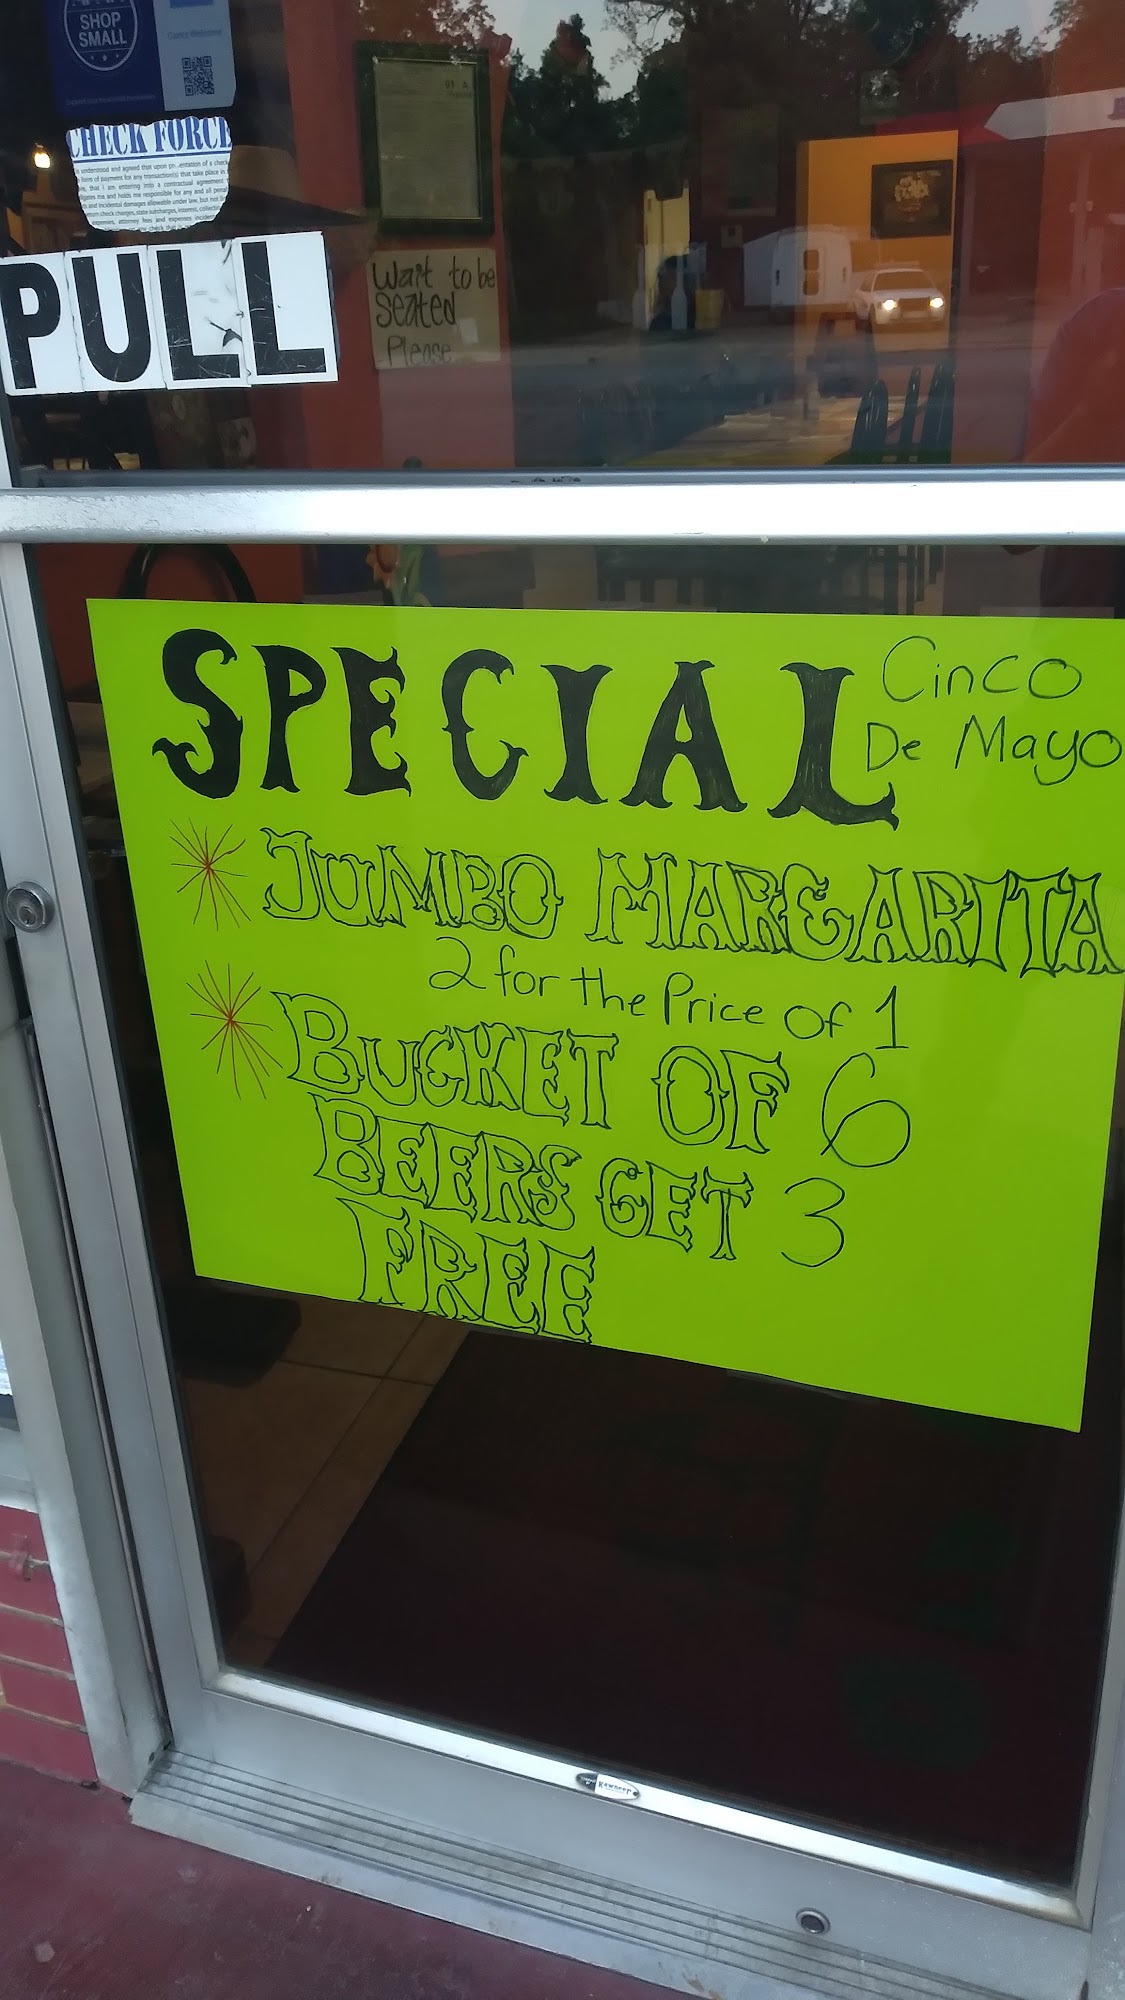 SHOP
SMALL
CHECK FORCE
PULL
Wait to be
Seated
Please
SPECIAL
Cinco
De Mayo
JUMBO MARGARITA
2 for the Price Of 1
BUCKET OF 6
BEERS GET 3
FREE